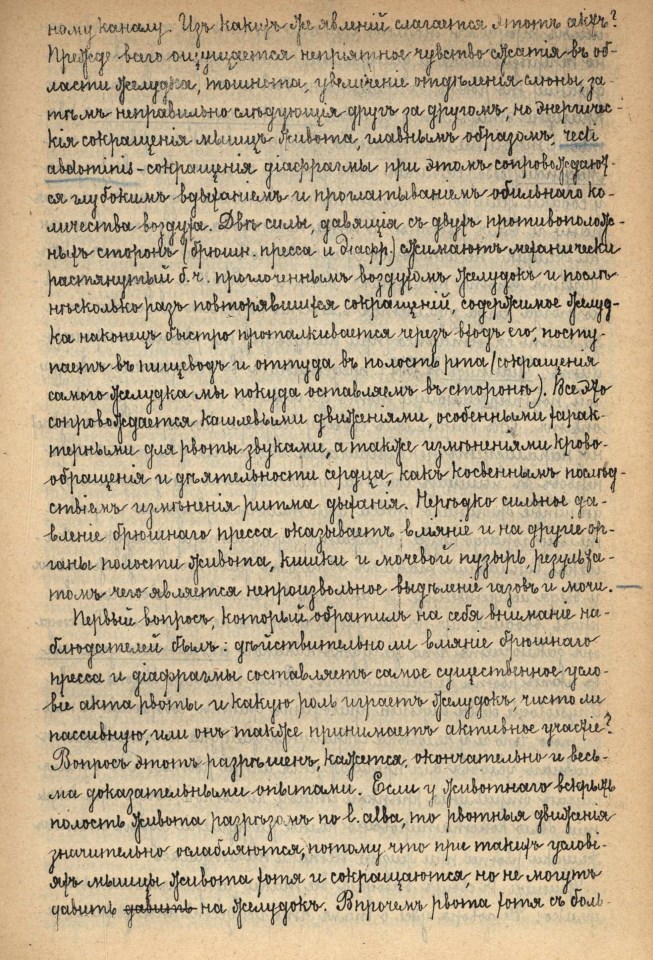 ному каналу. Изъ какихъ же явленій слагается этотъ актъ?
Прежде всего ощущается непріятное чувство сжатія въ об-
ласти желудка, тошнота, увеличеніе отдѣленія слюны, за-
тѣмъ неправильно слѣдующія другъ за другомъ, но энергичес-
кія сокращенія мышцъ живота, главнымъ образомъ, recti
abdominis - сокращенія діафрагмы при этомъ сопровождают-
ся глубокимъ вдыханіемъ и проглатываніемъ обильнаго ко-
личества воздуха. Двѣ силы, давящія съ двухъ противополож-
ныхъ сторонъ (брюшн. пресса и діафр.) сжимаютъ механически
растянутый б.ч. проглоченнымъ воздухомъ желудокъ и послѣ
нѣсколько разъ повторявшихся сокращеній, содержимое желуд-
ка наконецъ быстро проталкивается черезъ входъ его, посту-
паетъ въ пищеводъ и оттуда въ полость рта (сокращенія
самого желудка мы покуда оставляемъ въ сторонѣ). Все это
сопровождается кашлевыми движеніями, особенными харак-
терными для рвоты звуками, а также измѣненіями крово-
обращенія и дѣятельности сердца, какъ косвеннымъ послѣд-
ствіемъ измѣненія ритма дыханія. Нерѣдко сильное да-
вленіе брюшнаго пресса оказываетъ вліяніе и на другіе ор-
ганы полости живота, кишки и мочевой пузырь, результа-
томъ чего является непроизвольное выдѣленіе газовъ и мочи. —
Первый вопросъ, который обратилъ на себя вниманіе на-
блюдателей былъ: дѣйствительно ли вліяніе брюшнаго
пресса и діафрагмы составляетъ самое существенное усло-
віе акта рвоты и какую роль играетъ желудокъ, чисто ли
пассивную, или онъ также принимаетъ активное участіе?
Вопросъ этотъ разрѣшенъ, кажется, окончательно и весь-
ма доказательными опытами. Если у животнаго вскрыть
полость живота разрѣзомъ по l. alba, то рвотныя движенія
значительно ослабляются, потому что при такихъ услові-
яхъ мышцы живота хотя и сокращаются, но не могутъ
давить давить на желудокъ. Впрочемъ рвота хотя съ боль-